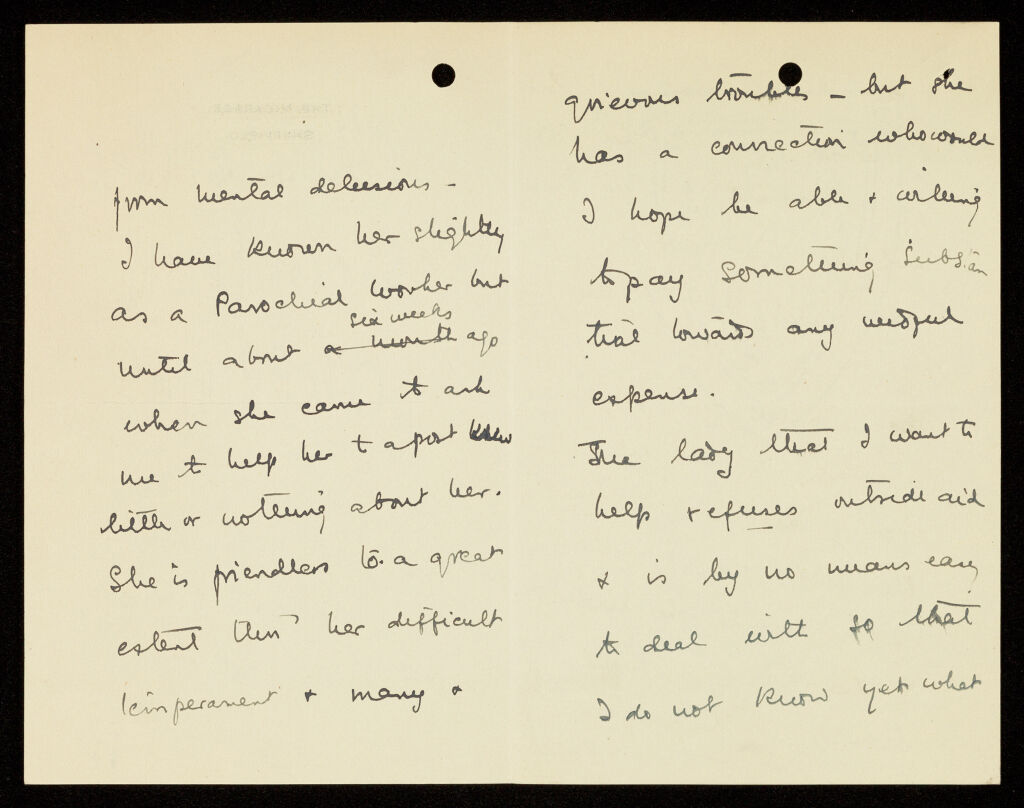 from mental delusions -
I have known her slightly
as a Parochial Worker but
six weeks
until about a month ago
when she came to ask
me to help her to a post knew
little or nothing about her.
She is friendless to a great
extent thro' her difficult
temperament + many +
grievous troubles - but she
has a connection who would
I hope be able + willing
to pay something substan
tial towards any needful
expense.
The lady that I want to
help refuses outside aid
+ is by no means easy
to deal with so that
I do not know yet what